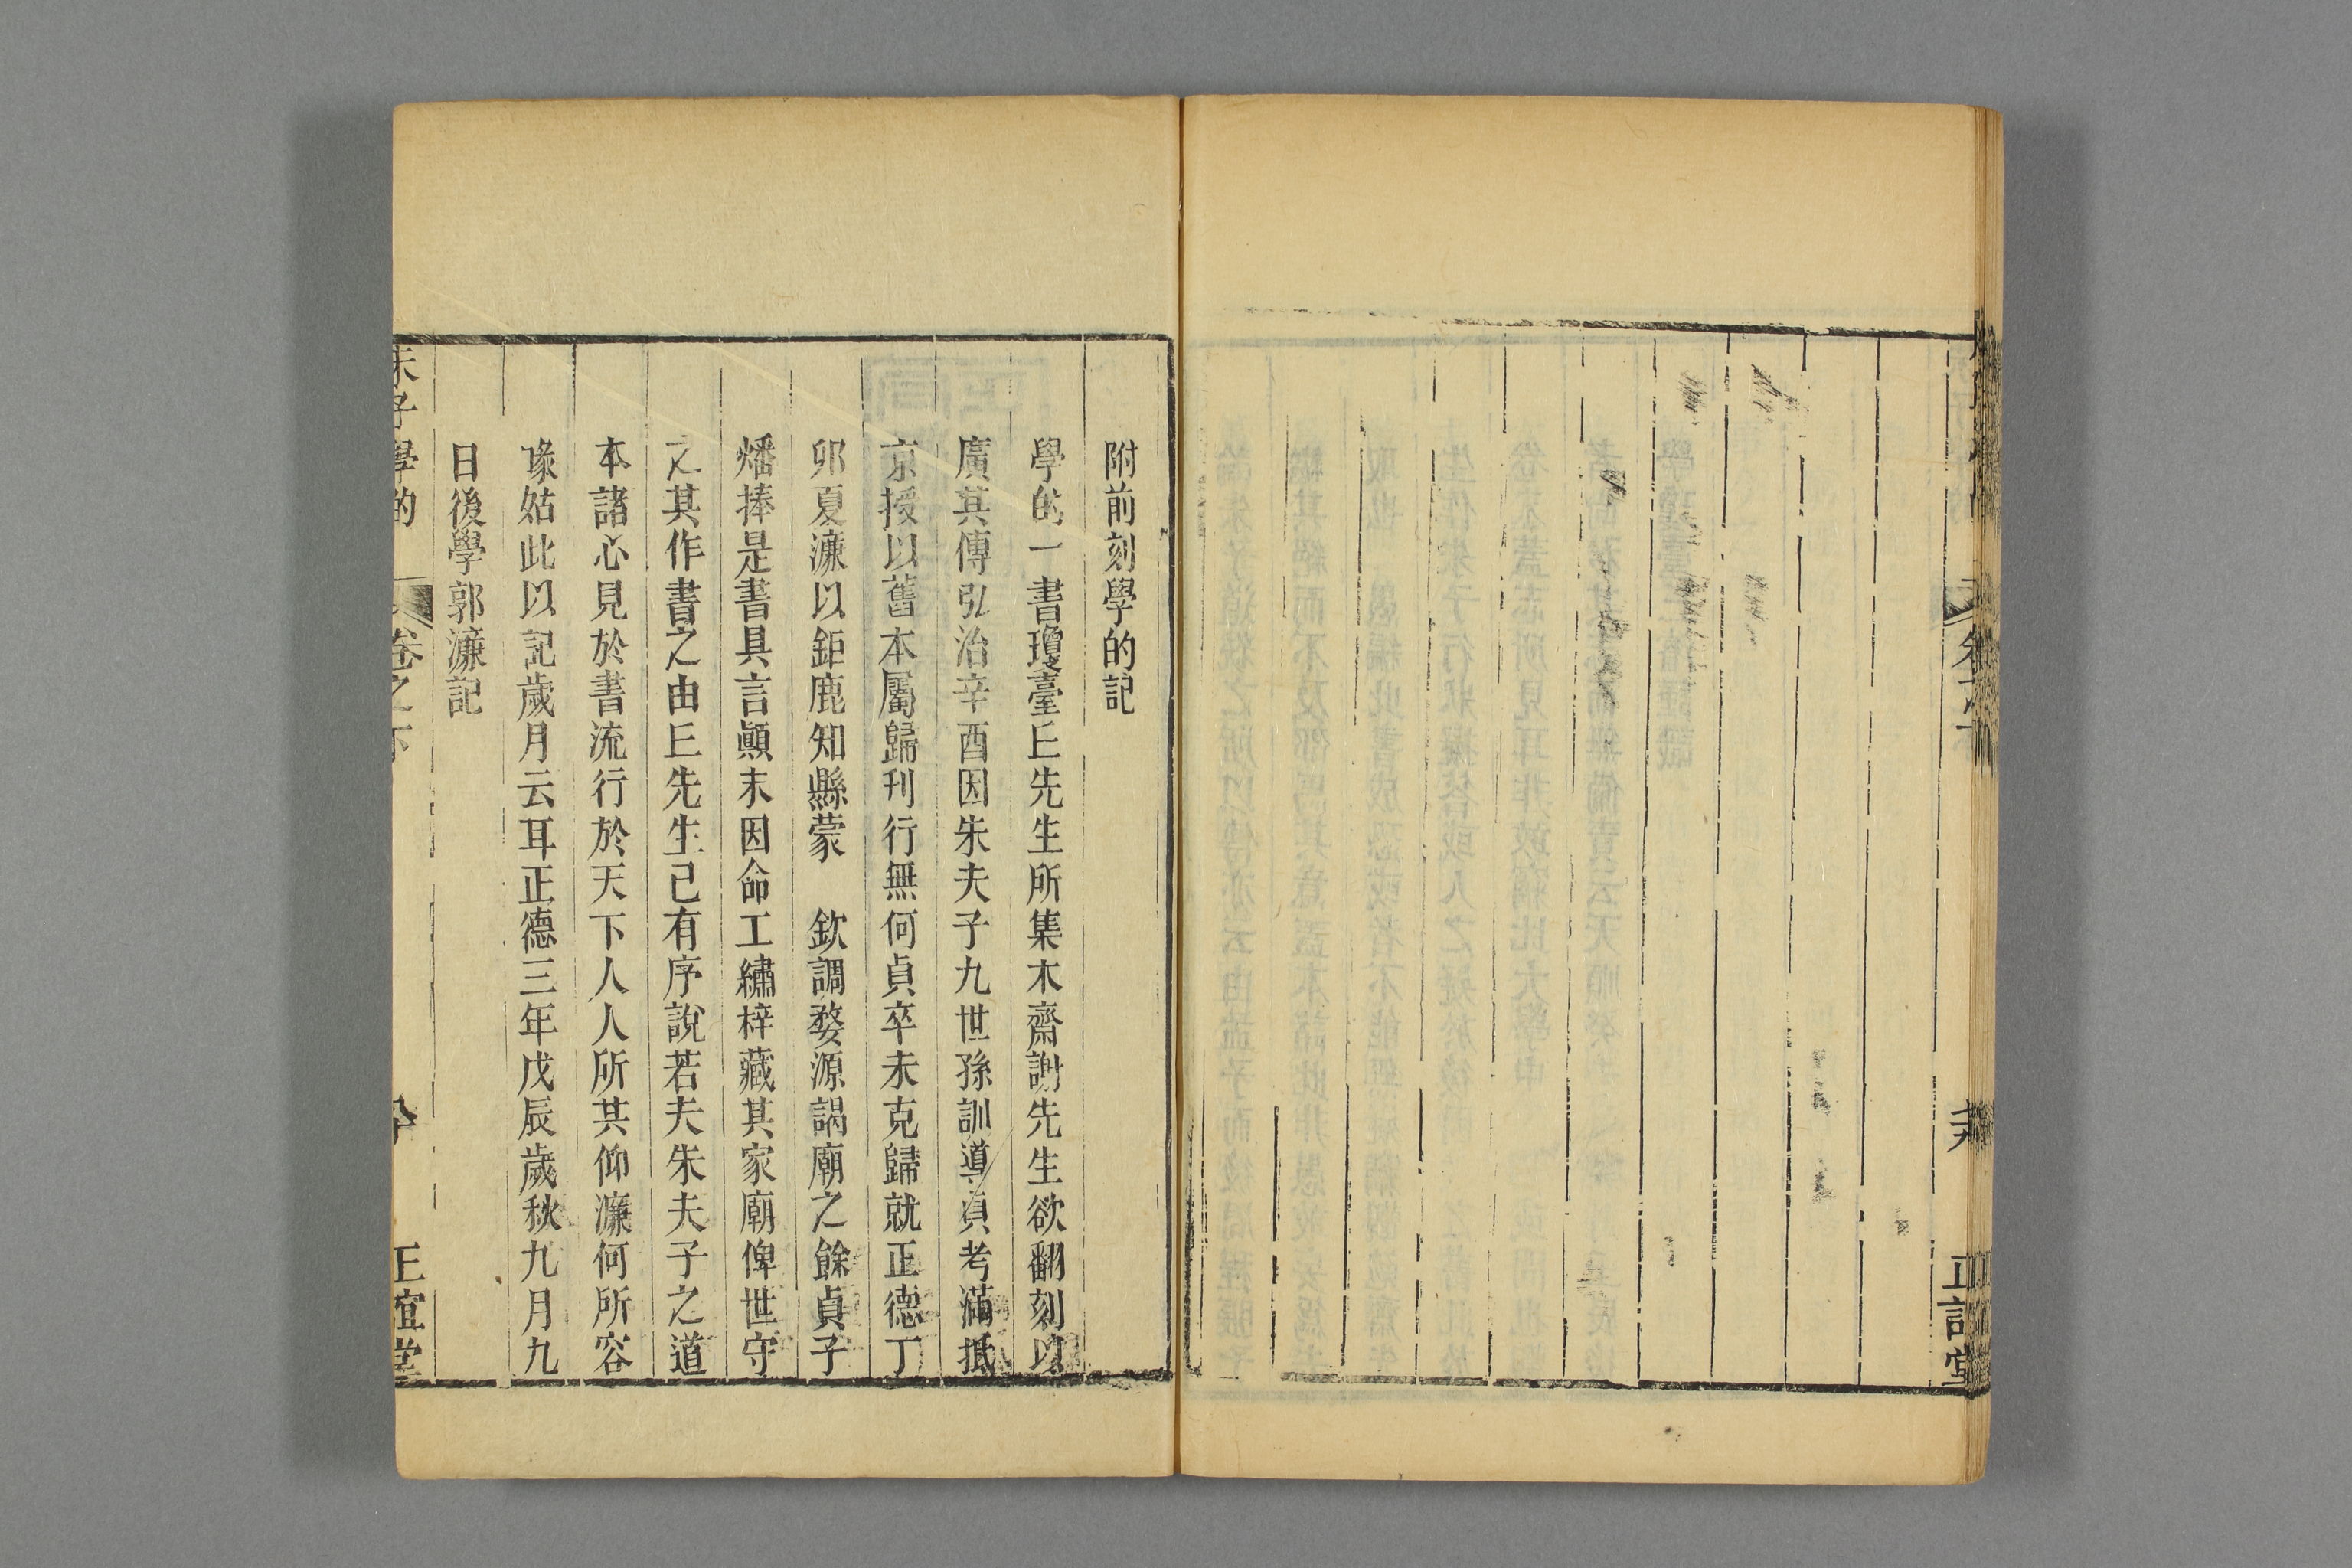 正誼堂
附前刻學的記
學的一書瓊臺丘先生所集木齋謝先生欲翻刻以
廣其傳弘治辛酉因朱夫子九世孫訓導貞考滿抵
京授以舊本屬歸刊行無何貞卒未克歸就正德丁
卯夏濂以鉅鹿知縣蒙　欽調婺源謁廟之餘貞子
燔捧是書具言顚末因命工繡梓藏其家廟俾世守
之其作書之由丘先生己有序說若夫朱夫子之道
本諸心見於書流行於天下人人所共仰濂何所容
喙姑此以記歲月云耳正德三年戊辰歲秋九月九
日後學郭濂記
朱子學的　卷之下　正誼堂